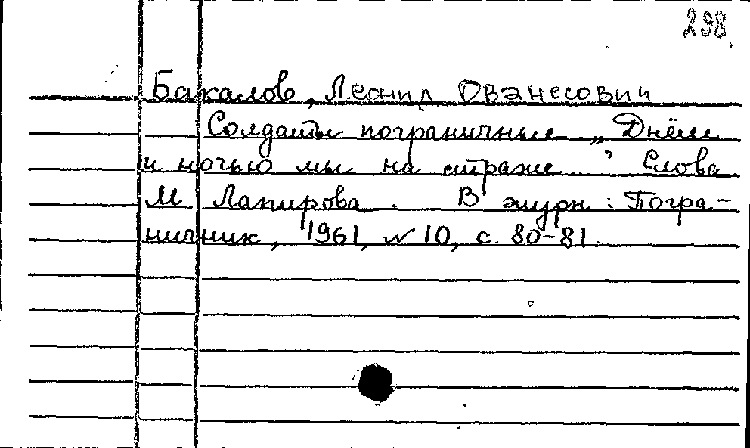 298
Бакалов, Леонид Ованесович
Солдаты пограничные. „Днём
и ночью мы на страже..." Слова
М. Лапирова. В журн.: Погра-
ничник, 1961, № 10, с. 80-81.